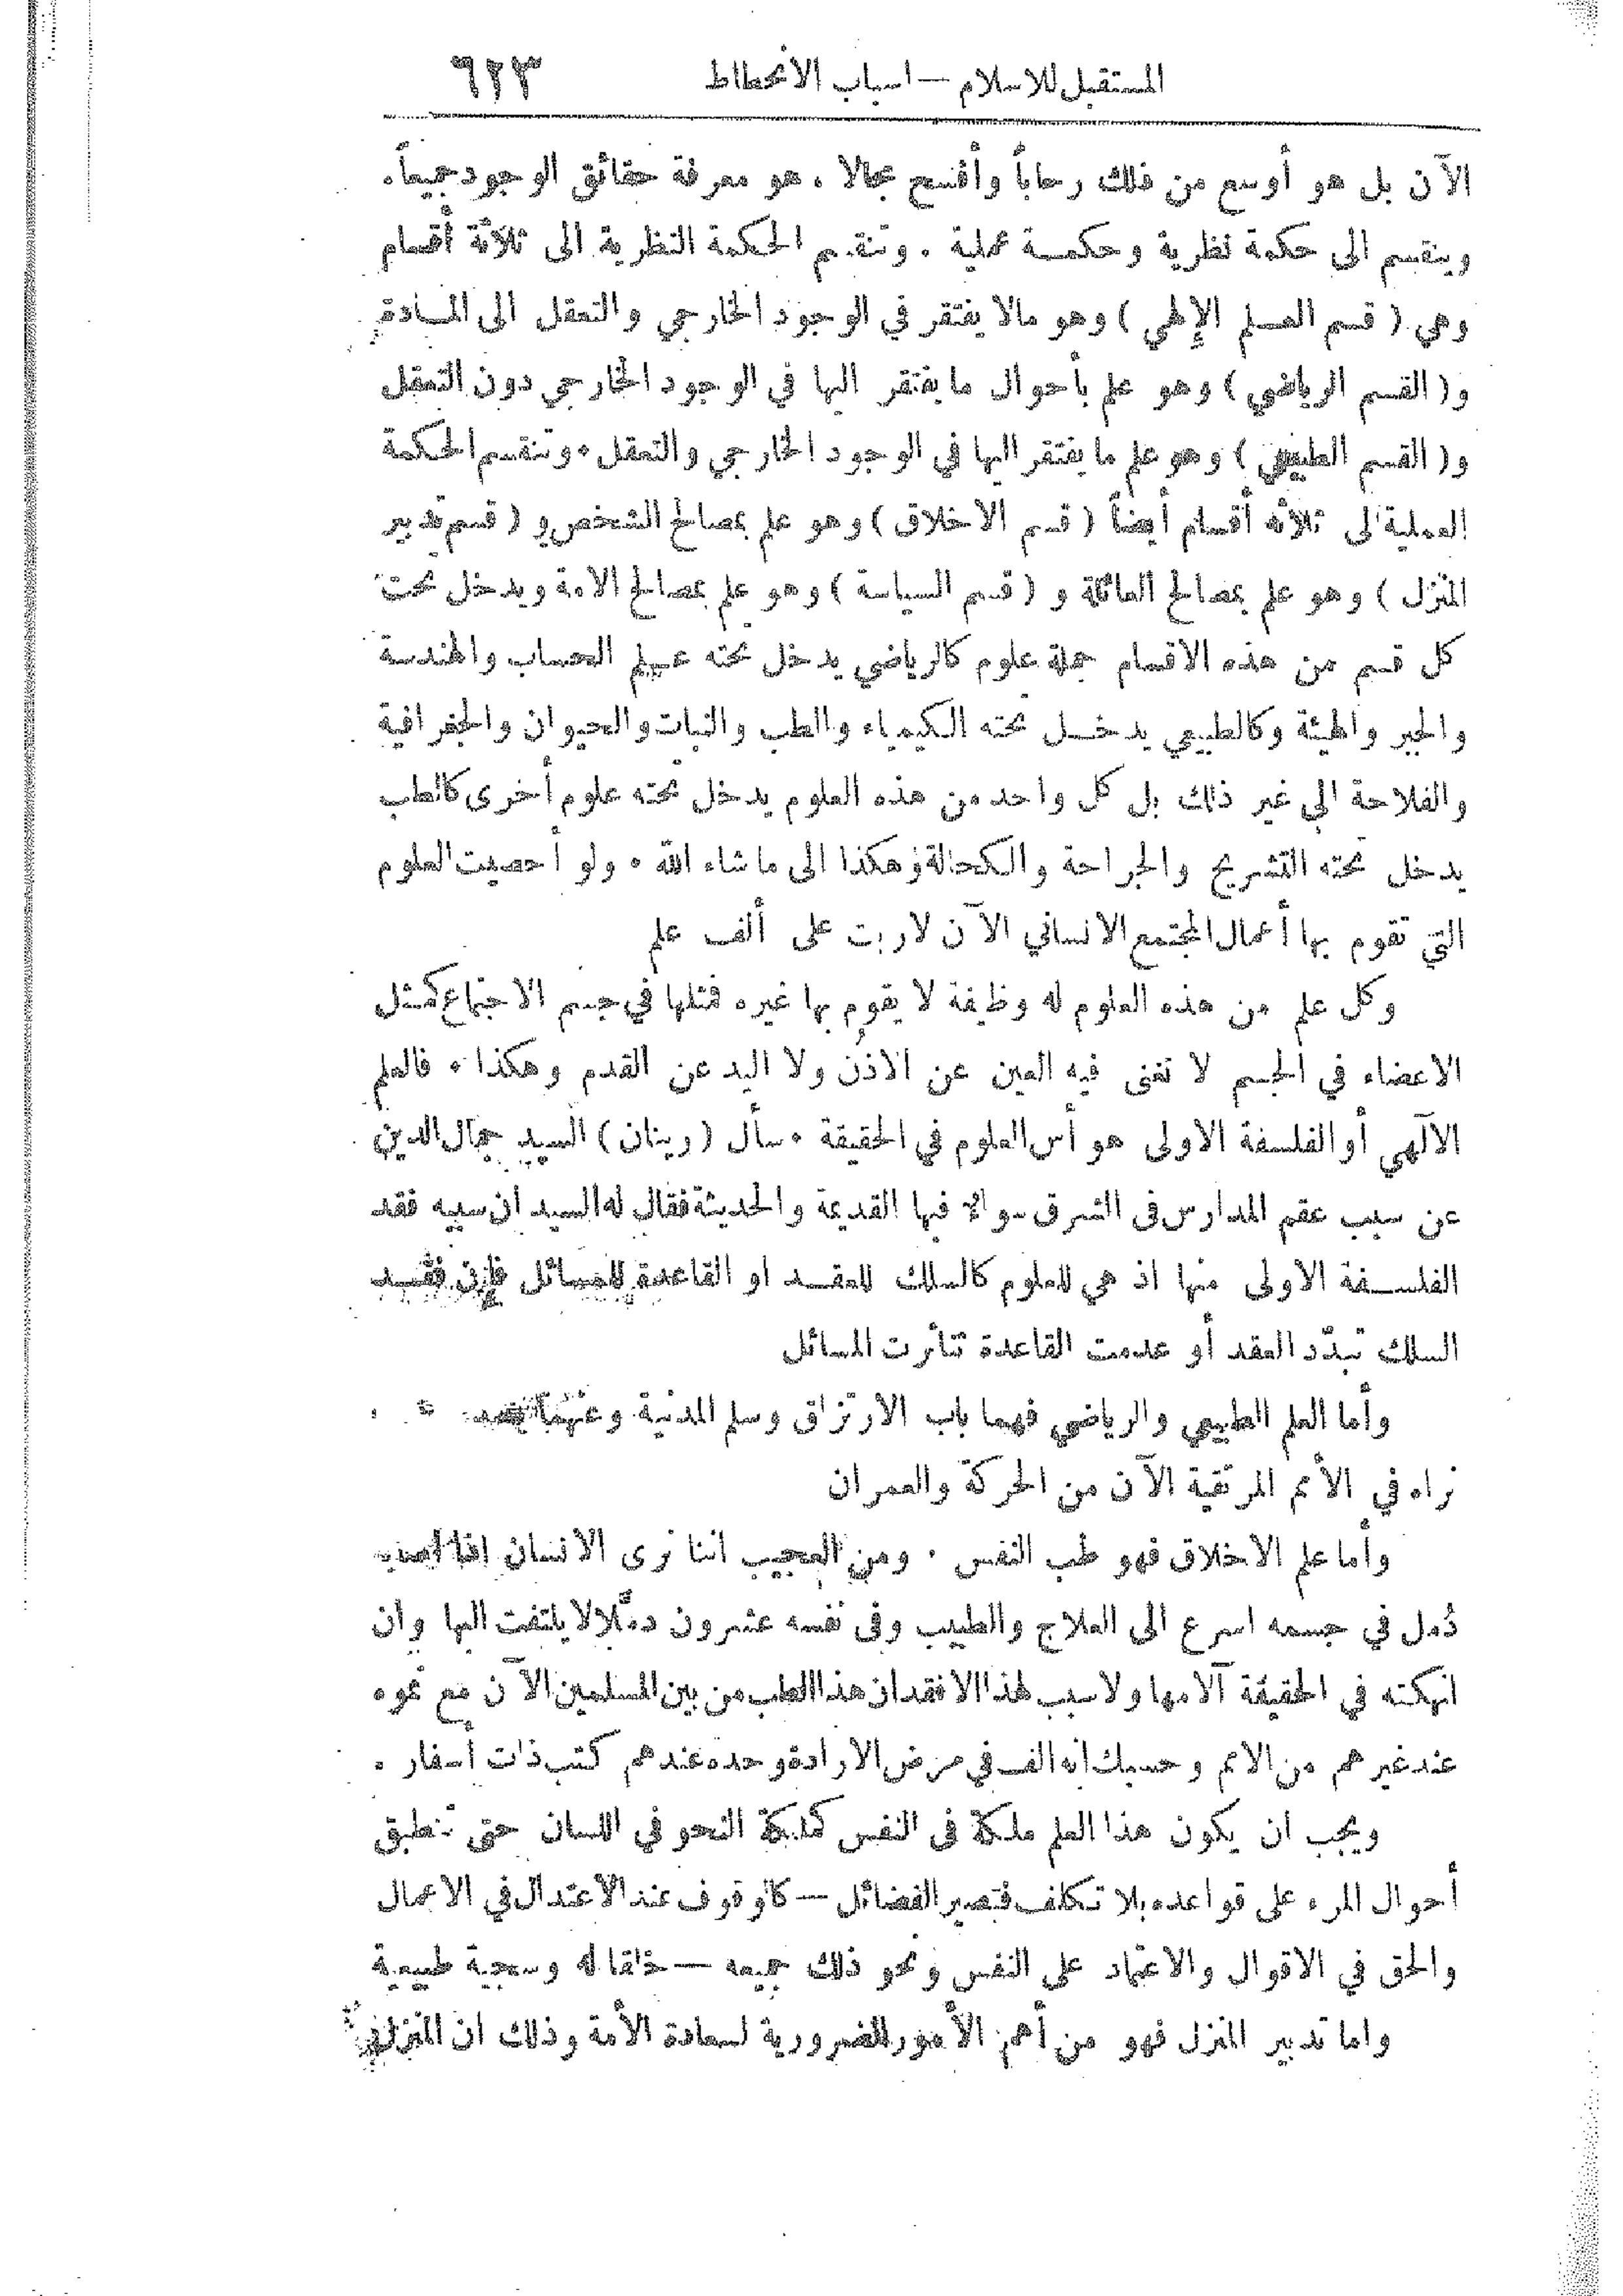 المستقبل للاسلام — اسباب الانحطاط ٦٢٣
الآن بل هو أوسع من ذلك رحاباً وأفسح مجالا . هو معرفة حقائق الوجود جميعاً .
وينقسم الى حكمة نظرية وحكمة عملية . وتنقسم الحكمة النظرية الى ثلاثة أقسام
وهي ( قسم العلم الإلهي ) وهو مالا يفتقر في الوجود الخارجي والتعقل الى المادة
و( القسم الرياضي ) وهو علم بأحوال ما يفتقر اليها في الوجود الخارجي دون التعقل
و( القسم الطبيعي ) وهو علم ما يفتقر اليها في الوجود الخارجي والتعقل . وتنقسم الحكمة
العملية الى ثلاثه أقسام أيضاً ( قسم الاخلاق ) وهو علم بمصالح الشخص و ( قسم تدبير
المنزل ) وهو علم بمصالح العائلة و ( قسم السياسة ) وهو علم بمصالح الامة ويدخل تحت
كل قسم من هذه الاقسام جملة علوم كالرياضي يدخل تحته علم الحساب والهندسة
والجبر والهيئة وكالطبيعي يدخل تحته الكيمياء والطب والنبات والحيوان والجغرافية
والفلاحة الى غير ذلك بل كل واحد من هذه العلوم يدخل تحته علوم أخرى كالطب
يدخل تحته التشريح والجراحة والكحالة وهكذا الى ماشاء الله . ولو أحصيت العلوم
التي تقوم بها أعمال المجتمع الانساني الآن لاربت على ألف علم
وكل علم من هذه العلوم له وظيفة لا يقوم بها غيره فمثلها في جسم الاجتماع كمثل
الاعضاء في الجسم لا تغنى فيه العين عن الاذن ولا اليد عن القدم وهكذا . فالعلم
الآلهي أو الفلسفة الاولى هو أس العلوم في الحقيقة . سأل ( رينان ) السيد جمال الدين
عن سبب عقم المدارس فى الشرق سواء فيها القديمة والحديثة فقال له السيد ان سببه فقد
الفلسفة الاولى منها اذ هي للعلوم كالسلك للعقد او القاعدة للمسائل فإن فقد
السلك تبدّد العقد أو عدمت القاعدة تناثرت المسائل
وأما العلم الطبيعي والرياضي فهما باب الارتزاق وسلم المدنية وعنهما
نراه في الأمم المرتقية الآن من الحركة والعمران
وأما علم الاخلاق فهو طب النفس . ومن العجيب اننا نرى الانسان اذا
دُمل في جسمه اسرع الى العلاج والطبيب وفى نفسه عشرون دمَّلا لا يلتفت اليها وان
انهكته في الحقيقة آلامها ولا سبب لهذا الا فقدان هذا الطب من بين المسلمين الآن مع نموه
عند غيرهم من الامم وحسبك انه الف في مرض الارادة وحده عندهم كتب ذات أسفار .
ويجب ان يكون هذا العلم ملكة فى النفس كملكة النحو في اللسان حتى تنطبق
أحوال المرء على قواعده بلا تكلف فتصير الفضائل — كالوقوف عند الاعتدال في الاعمال
والحق في الاقوال والاعتماد على النفس ونحو ذلك جميعه — خلقا له وسجية طبيعية
واما تدبير المنزل فهو من أهم الأمور الضرورية لسعادة الأمة وذلك ان المنزل